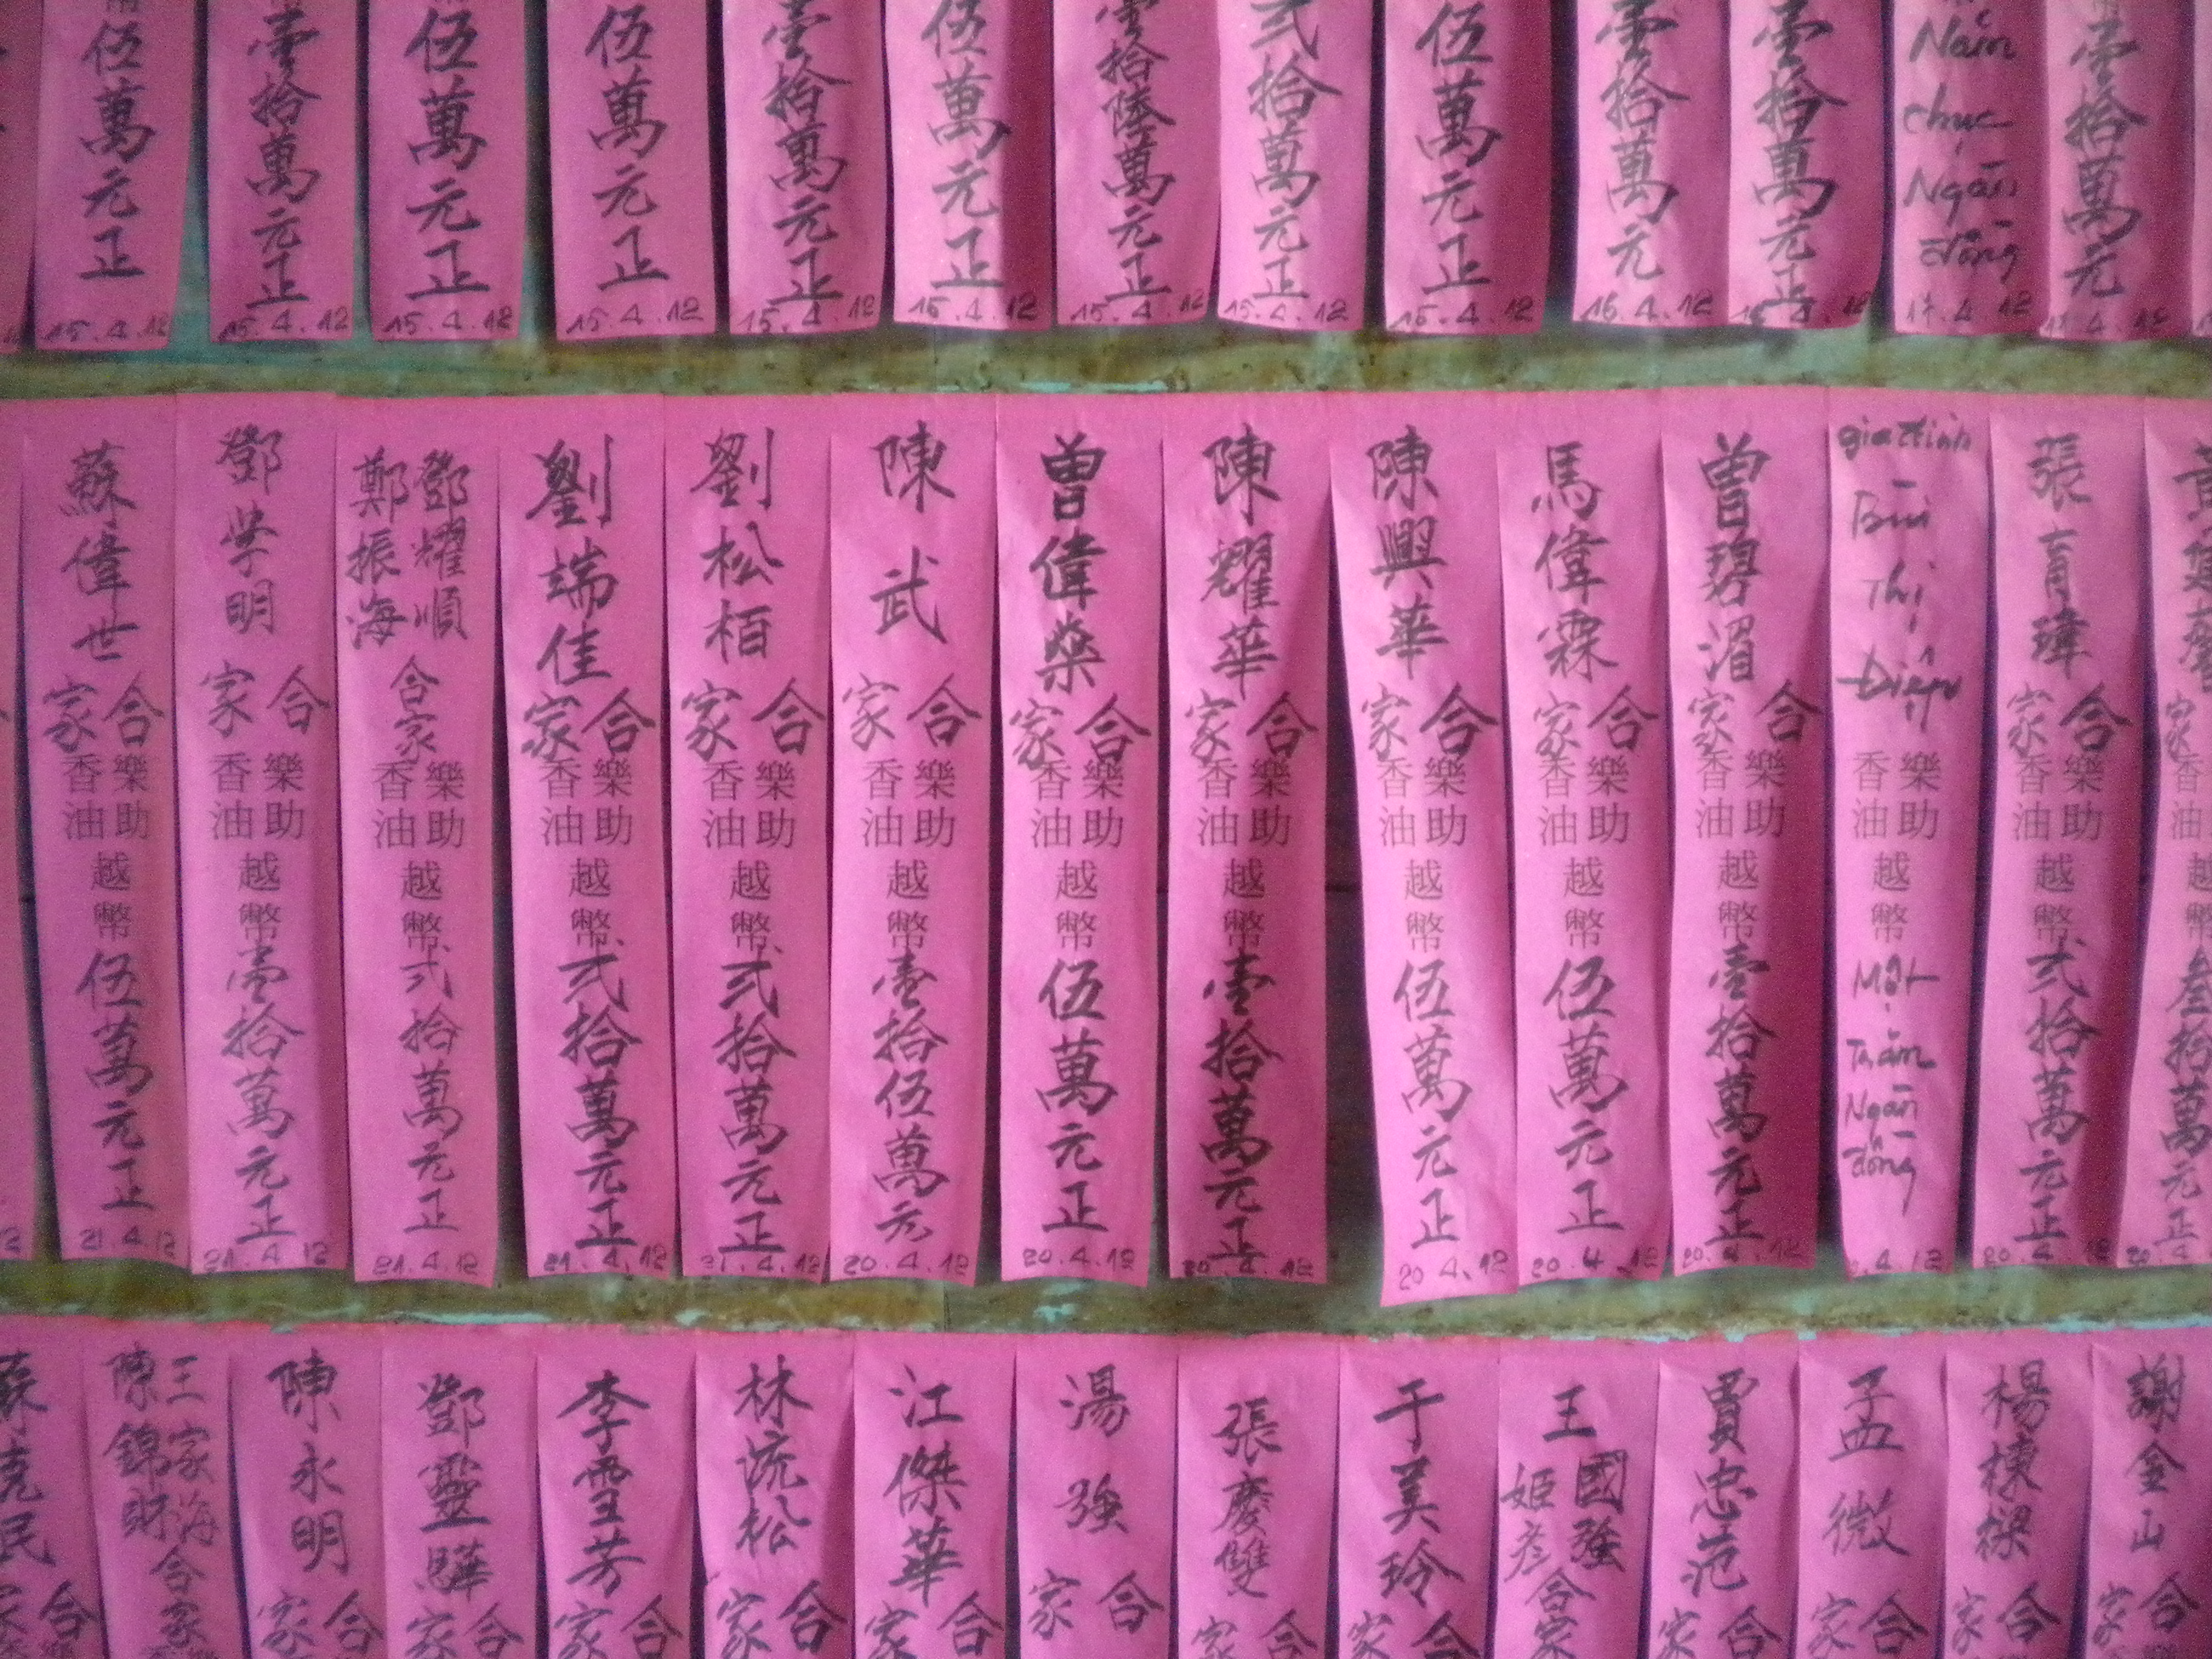 伍萬元正
15.4.12
壹拾萬元正
15.4.12
伍萬元正
15.4.12
伍萬元正
15.4.12
壹拾萬元正
15.4.12
伍萬元正
15.4.12
壹拾陸萬元正
15.4.12
弍拾萬元正
15.4.12
伍萬元正
15.4.12
壹拾萬元
16.4.12
壹拾萬元正
Năm
chục
Ngàn
đồng
17.4.12
壹拾萬元
蘇偉世
合家
樂助
香油
越幣
伍萬元正
21.4.12
鄧學明
合家
樂助
香油
越幣
壹拾萬元正
21.4.12
鄧耀順
鄭振海
合家
樂助
香油
越幣
弍拾萬元正
21.4.12
劉端佳
合家
樂助
香油
越幣
弍拾萬元正
21.4.12
劉松栢
合家
樂助
香油
越幣
弍拾萬元正
21.4.12
陳武
合家
樂助
香油
越幣
壹拾伍萬元
20.4.12
曾偉燊
合家
樂助
香油
越幣
伍萬元正
20.4.12
陳耀華
合家
樂助
香油
越幣
壹拾萬元正
20.4.12
陳興華
合家
樂助
香油
越幣
伍萬元正
20.4.12
馬偉霖
合家
樂助
香油
越幣
伍萬元正
20.4.12
曾碧湄
合家
樂助
香油
越幣
壹拾萬元正
20.4.12
gia đình
Bùi
Thị
Điệp
樂助
香油
越幣
Một
Trăm
Ngàn
đồng
張育瑋
合家
樂助
香油
越幣
弍拾萬元正
20.4.12
叁拾萬元正
王家海
陳錦財
合家
陳永明
合家
鄧靈驊
合家
李雪芳
合家
林流松
合家
江傑華
合家
湯強
合家
張慶雙
合家
于美玲
合家
王國強
姬彥
合家
賈忠范
合家
孟微
合家
楊棟樑
合家
謝金山
合家